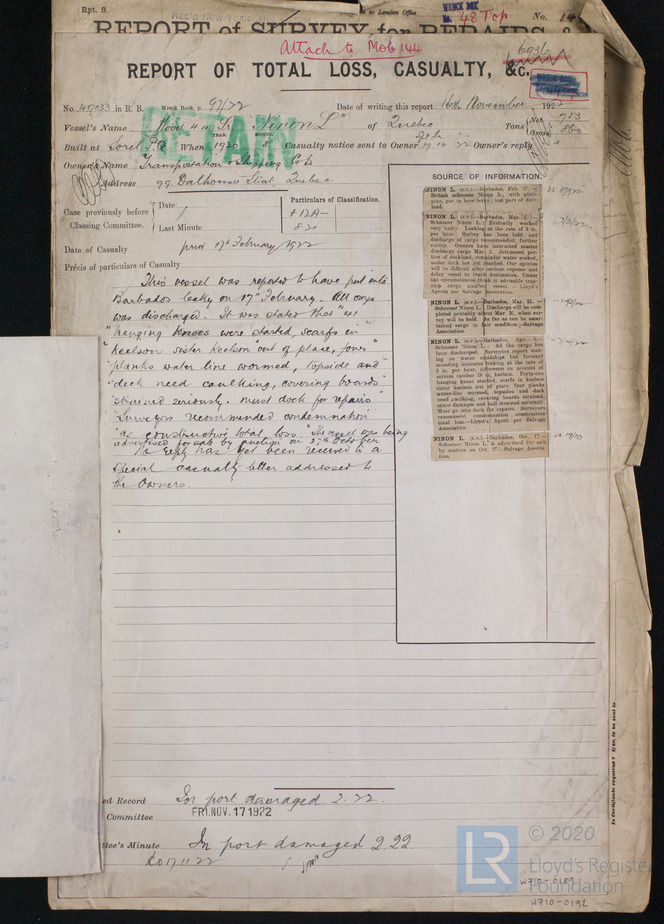 Rpt. 8.
No. 14
48 Top
REPORT of SURVEY for REPAIRS, &
Attach to Mob 144
6936
REPORT OF TOTAL LOSS, CASUALTY, &c.
No. 45033 in R. B. Wreck Book, p 97/22 Date of writing this report 16th November 1922
Vessel's Name Wood 4 m Sr "Ninon L" of Quebec Tons Net 713 Gross 860
RETAIN
Built at Sorel P.Q. When YEAR. 1920 MONTH. 8 Casualty notice sent to Owner 19.10.22 Owner's reply
Owner's Name Transportation & Shipping Co Ld
Address 99 Dalhousie Street, Quebec
Case previously before Classing Committee. Date
Last Minute
Particulars of Classification.
+12A-
8.20
Date of Casualty prior 17th February 1922
Précis of particulars of Casualty
This vessel was reported to have put into
Barbados leaky on 17th February. All cargo
was discharged. It was stated that "41
"hanging knees were started, scarfs in
"keelson sister keelson "out of place, four"
"planks water line wormed, topside and"
"deck need caulking, covering boards"
"strained seriously. Must dock for repairs"
"Surveyors recommended condemnation"
"as constructive total loss." The vessel was being
advertised for sale by auction on 27th October.
No reply has yet been received to a
special casualty letter addressed to
the Owners.
SOURCE OF INFORMATION.
NINON L. (s.v.)—Barbados, Feb. 17.—
British schooner Ninon L., with
lost part of deck
load.
NINON L. (s.v.)—Barbados, Mar. 2.—
Schooner Ninon L.: Evidently worked
very badly. Leaking at the rate of 3 in.
per hour. Survey has been held and
discharge of cargo recommended, further
survey. Owners have instructed master
discharge cargo Mar. 1. Jettisoned portion
of deckload, remainder water soaked,
under deck not yet reached. Our opinion
will be difficult after serious expense and
delay vessel to reach destination. Under
the circumstances think it advisable tranship
cargo another vessel. — Lloyd's
Agents per Salvage Association.
7/3/22
NINON L. (s.v.)—Barbados, Mar. 13.—
Schooner Ninon L.: Discharge will be completed
probably about Mar. 31, when survey
will be held. As far as can be ascertained
cargo is fair condition.—Salvage
Association.
NINON L. (s.v.)—Barbados, Apr. 5.—
Schooner Ninon L.: All the cargo has
been discharged. Surveyors report making
no water amidships but forward
sounding indicates leaking at the rate of
3 in. per hour, difference on account of
serious camber 18 in. keelson. Forty-one
hanging knees started, scarfs in keelson
sister keelson out of place, four planks
water-line wormed, topsides and deck
need caulking, covering boards strained,
other damages and hull strained seriously.
Must go into dock for repairs. Surveyors
recommend condemnation constructive
total loss.—Lloyd's Agent per Salvage
Association.
NINON L. (s.v.)—Barbados, Oct. 17.—
Schooner Ninon L. is advertised for sale
by auction on Oct. 27.—Salvage Association.
ed Record In port damaged 2.22.
Committee FRI. NOV. 17 1922
ttee's Minute In port damaged 2.22.
LR
© 2020
Lloyd's Register
Foundation
W710-0189
W710-0192